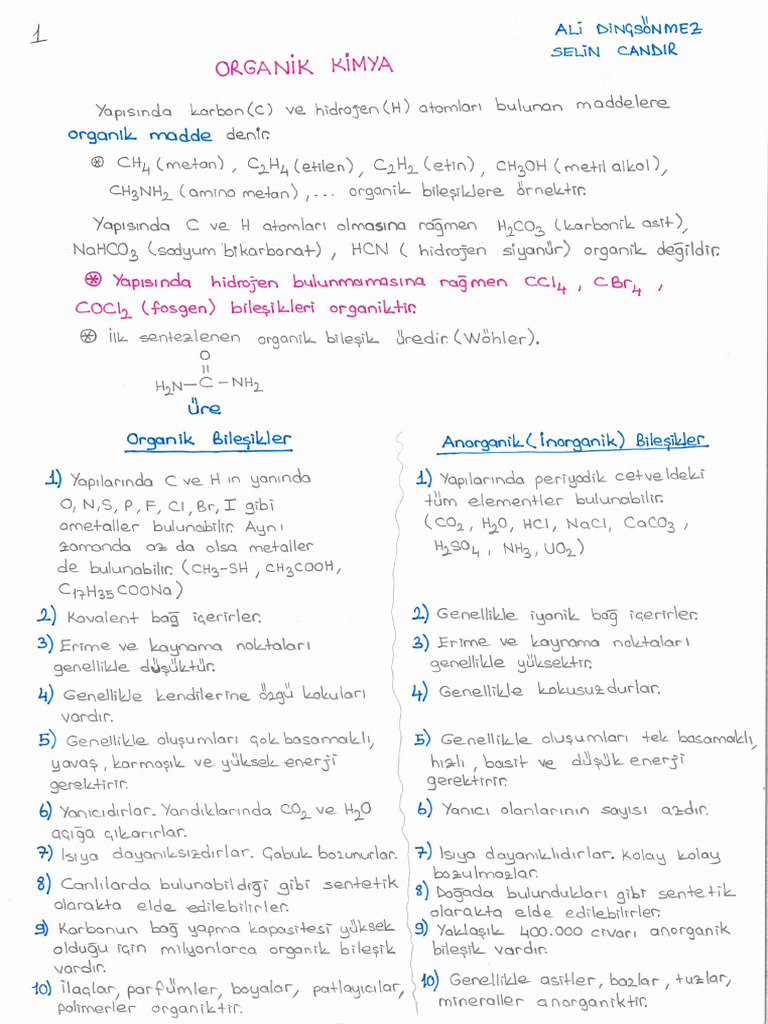 1
ALİ DİNÇSÖNMEZ
SELİN CANDIR
ORGANİK KİMYA
Yapısında karbon(C) ve hidrojen(H) atomları bulunan maddelere
organik madde denir.
⊛ CH₄ (metan), C₂H₄ (etilen), C₂H₂ (etin), CH₃OH (metil alkol),
CH₃NH₂ (amino metan),... organik bileşiklere örnektir.
Yapısında C ve H atomları olmasına rağmen H₂CO₃ (karbonik asit),
NaHCO₃ (sodyum bikarbonat), HCN ( hidrojen siyanür) organik değildir.
⊛ Yapısında hidrojen bulunmamasına rağmen CCl₄, CBr₄,
COCl₂ (fosgen) bileşikleri organiktir.
⊛ İlk sentezlenen organik bileşik üredir.(Wöhler).
O
||
H₂N–C–NH₂
Üre
Organik Bileşikler
1) Yapılarında C ve H ın yanında
O, N, S, P, F, Cl, Br, I gibi
ametaller bulunabilir. Aynı
zamanda az da olsa metaller
de bulunabilir. (CH₃-SH, CH₃COOH,
C₁₇H₃₅COONa)
2) Kovalent bağ içerirler.
3) Erime ve kaynama noktaları
genellikle düşüktür.
4) Genellikle kendilerine özgü kokuları
vardır.
5) Genellikle oluşumları çok basamaklı,
yavaş, karmaşık ve yüksek enerji
gerektirir.
6) Yanıcıdırlar. Yandıklarında CO₂ ve H₂O
açığa çıkarırlar.
7) Isıya dayanıksızdırlar. Çabuk bozunurlar.
8) Canlılarda bulunabildiği gibi sentetik
olarakta elde edilebilirler.
9) Karbonun bağ yapma kapasitesi yüksek
olduğu için milyonlarca organik bileşik
vardır.
10) İlaçlar, parfümler, boyalar, patlayıcılar,
polimerler organiktir.
Anorganik (İnorganik) Bileşikler
1) Yapılarında periyodik cetveldeki
tüm elementler bulunabilir.
(CO₂, H₂O, HCl, NaCl, CaCO₃,
H₂SO₄, NH₃, UO₂)
2) Genellikle iyonik bağ içerirler.
3) Erime ve kaynama noktaları
genellikle yüksektir.
4) Genellikle kokusuzdurlar.
5) Genellikle oluşumları tek basamaklı,
hızlı, basit ve düşük enerji
gerektirir.
6) Yanıcı olanlarının sayısı azdır.
7) Isıya dayanıklıdırlar. Kolay kolay
bozulmazlar.
8) Doğada bulundukları gibi sentetik
olarakta elde edilebilirler.
9) Yaklaşık 400.000 civarı anorganik
bileşik vardır.
10) Genellikle asitler, bazlar, tuzlar,
mineraller anorganiktir.